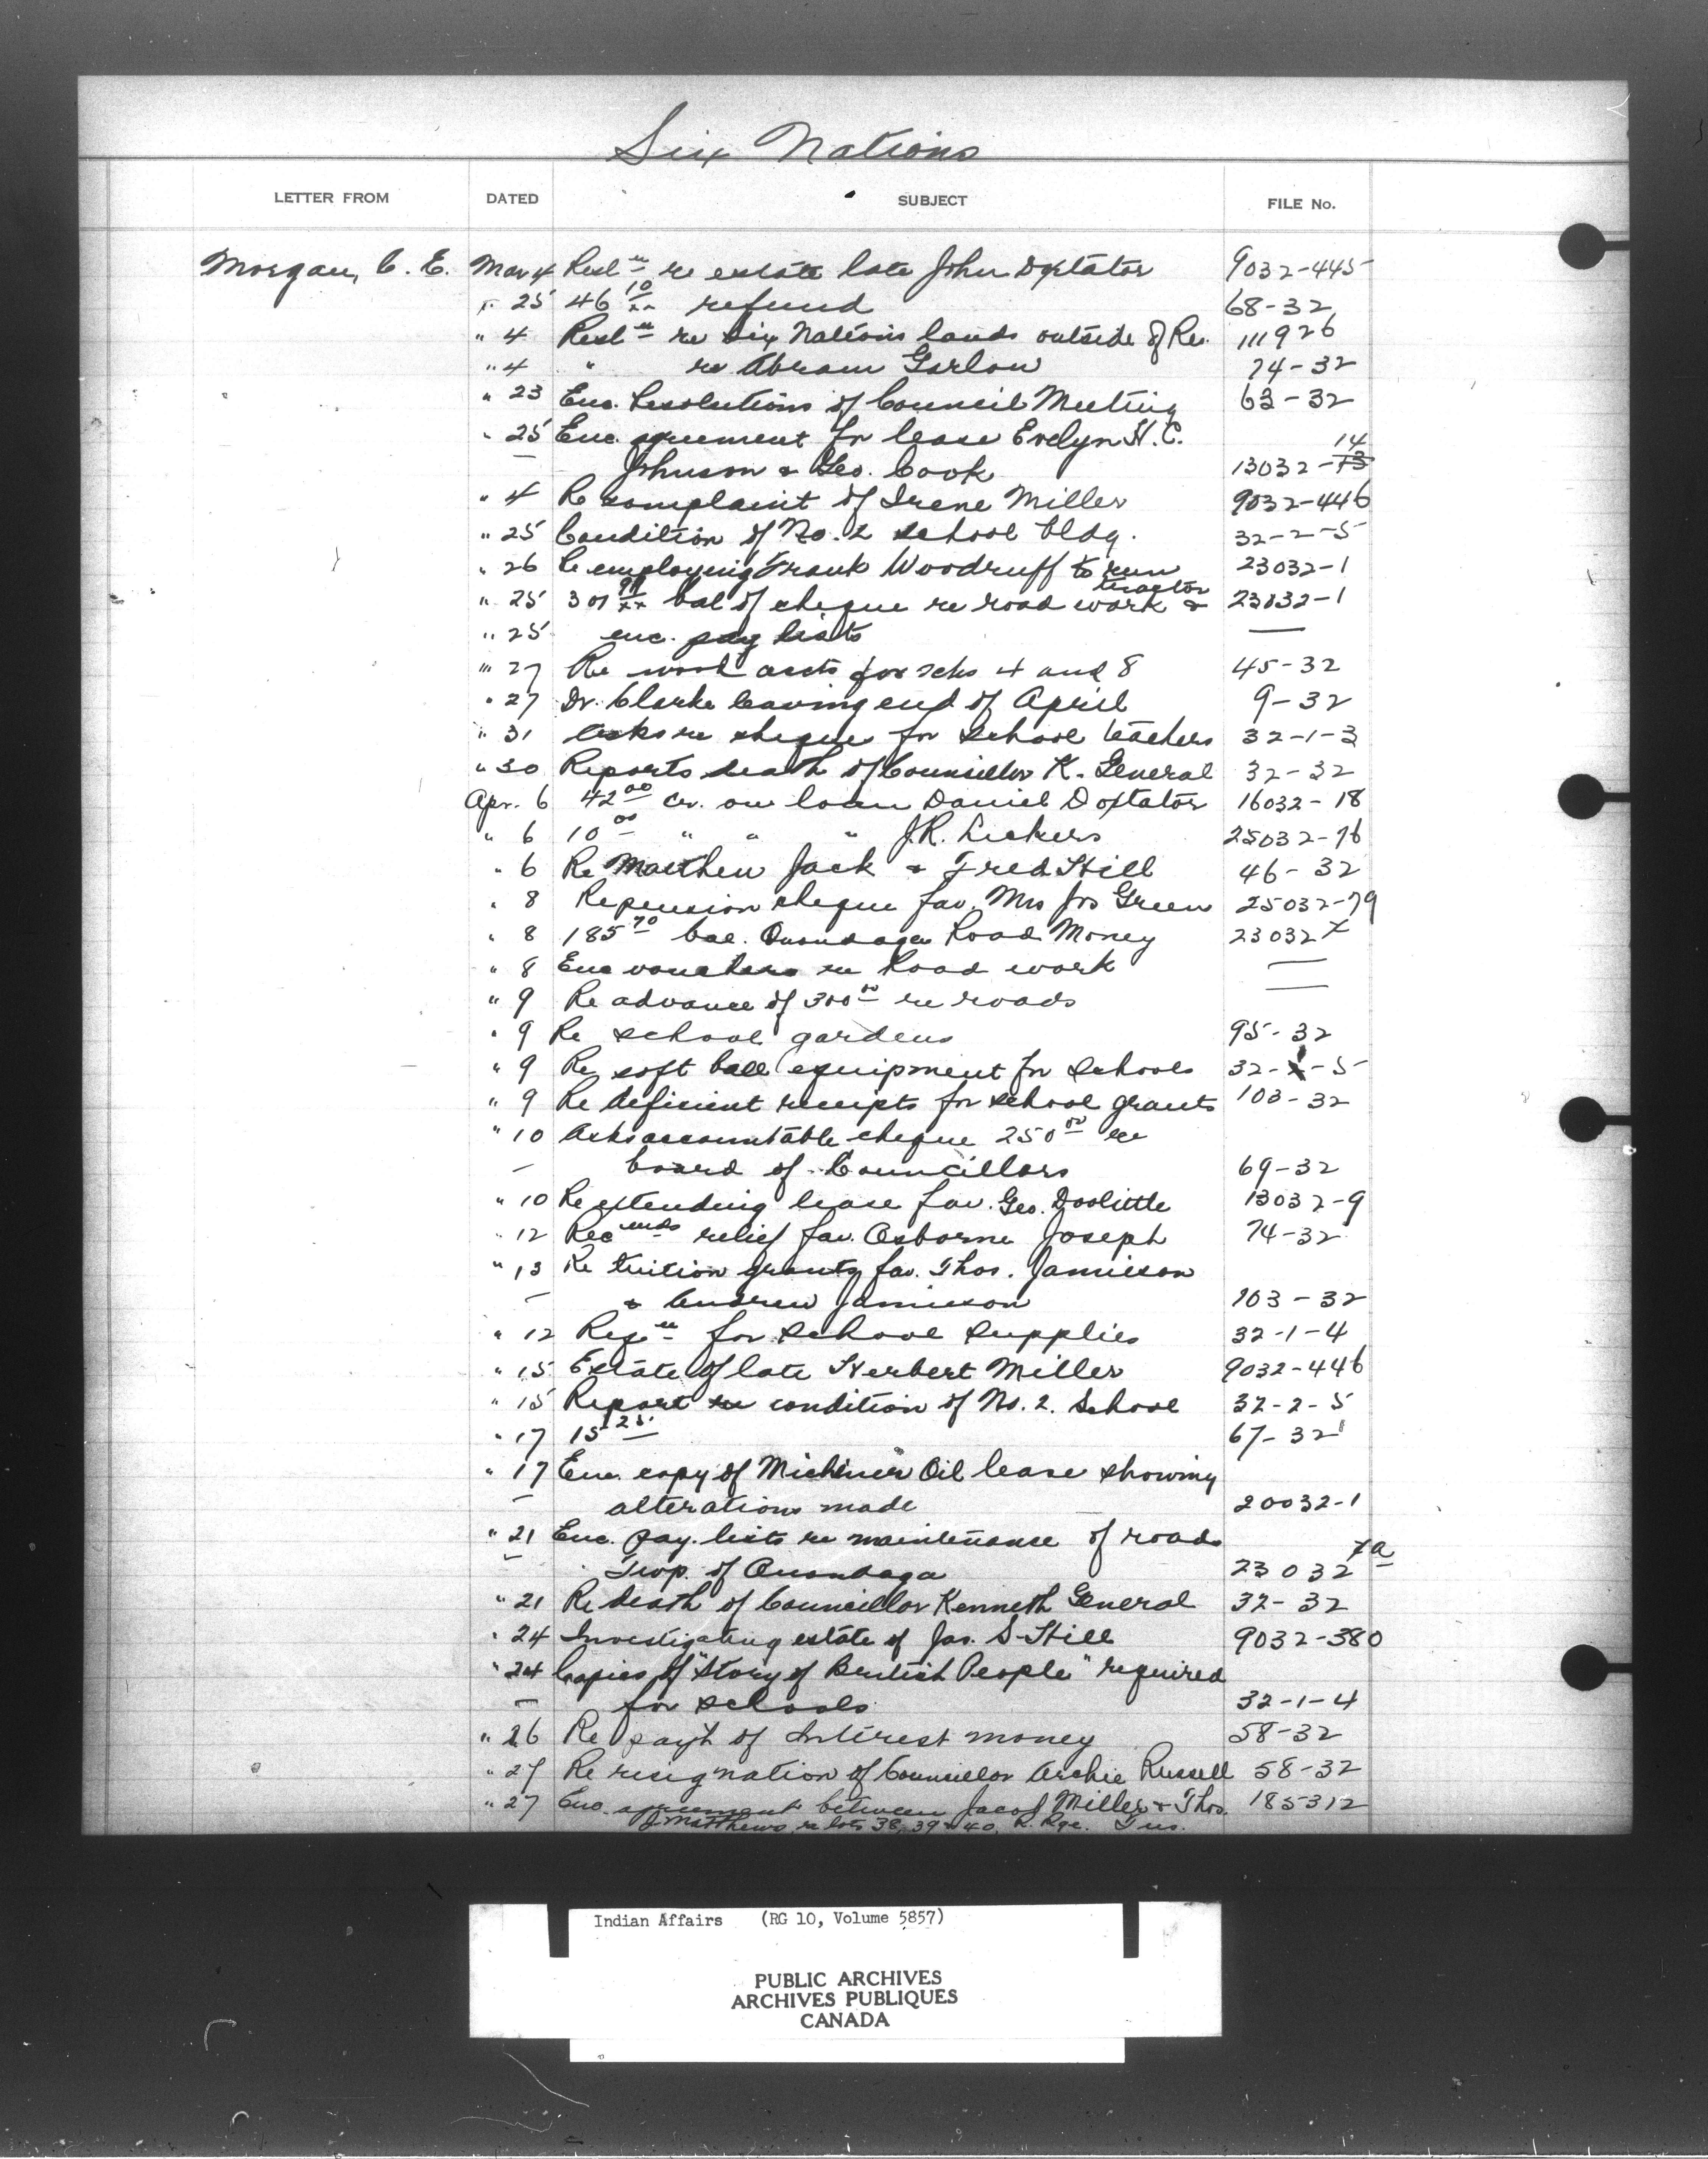 Six Nations
LETTER FROM DATED SUBJECT FILE No.
Morgan, C. E. Mar 4 Resl<sup>n</sup> re estate late John Doxtator 9032-445
" 25 46 10/xx refund 68-32
" 4 Resl<sup>n</sup> re Six Nations lands outside of Res. 111926
" 4 " re Abram Garlow 74-32
" 23 Enc. Resolutions of Council Meeting 63-32
" 25 Enc. agreement for lease Evelyn H. C.
— Johnson & Geo. Cook 13032-73 14
" 4 Re complaint of Irene Miller 9032-446
" 25 Condition of No. 2 school bldg. 32-2-5
" 26 Re employing Frank Woodruff to run tractor 23032-1
" 25 301 99/xx bal of cheque re road work & 23032-1
" 25 enc. pay lists —
" 27 Re wood accts for schs 4 and 8 45-32
" 27 Dr. Clarke leaving end of April 9-32
" 31 Asks re cheques for School teachers 32-1-3
" 30 Reports death of Councillor K. General 32-32
Apr. 6 42 00 cr. on loan Daniel Doxtator 16032-18
" 6 10 00 " " " J.R. Lickers 25032-76
" 6 Re Matthew Jack & Fred Hill 46-32
" 8 Re pension cheque fav. Mrs Jos Green 25032-79
" 8 185 70 bal. Onondaga Road Money 23032 x
" 8 Enc vouchers re Road work —
" 9 Re advance of 300 00 re roads —
" 9 Re school gardens 95-32
" 9 Re soft ball equipment for Schools 32-1-5
" 9 Re deficient receipts for school grants 103-32
" 10 Asks accountable cheque 250 00 re
— board of Councillors 69-32
" 10 Re extending lease fav. Geo. Doolittle 13032-9
" 12 Rec<sup>mds</sup> relief fav. Osborne Joseph 74-32
" 13 Re tuition grants fav. Thos. Jamieson
— & Andrew Jamieson 103-32
" 12 Reqn for School supplies 32-1-4
" 15 Estate of late Herbert Miller 9032-446
" 15 Report re condition of No. 2. School 32-2-5
" 17 15 25 67-32
" 17 Enc. copy of Michener Oil lease showing
— alterations made 20032-1
" 21 Enc. pay. lists re maintenance of roads
— Twp. of Onondaga 23032 xa
" 21 Re death of Councillor Kenneth General 32-32
" 24 Investigating estate of Jas. S. Hill 9032-380
" 24 Copies of "Story of British People" required
— for schools 32-1-4
" 26 Re pay't of Interest money 58-32
" 27 Re resignation of Councillor Archie Russell 58-32
" 27 Enc. agreement between Jacob Miller & Thos. 185312
J. Matthews re lots 38, 39 & 40, R. Rge. Tus.
Indian Affairs (RG 10, Volume 5857)
PUBLIC ARCHIVES
ARCHIVES PUBLIQUES
CANADA